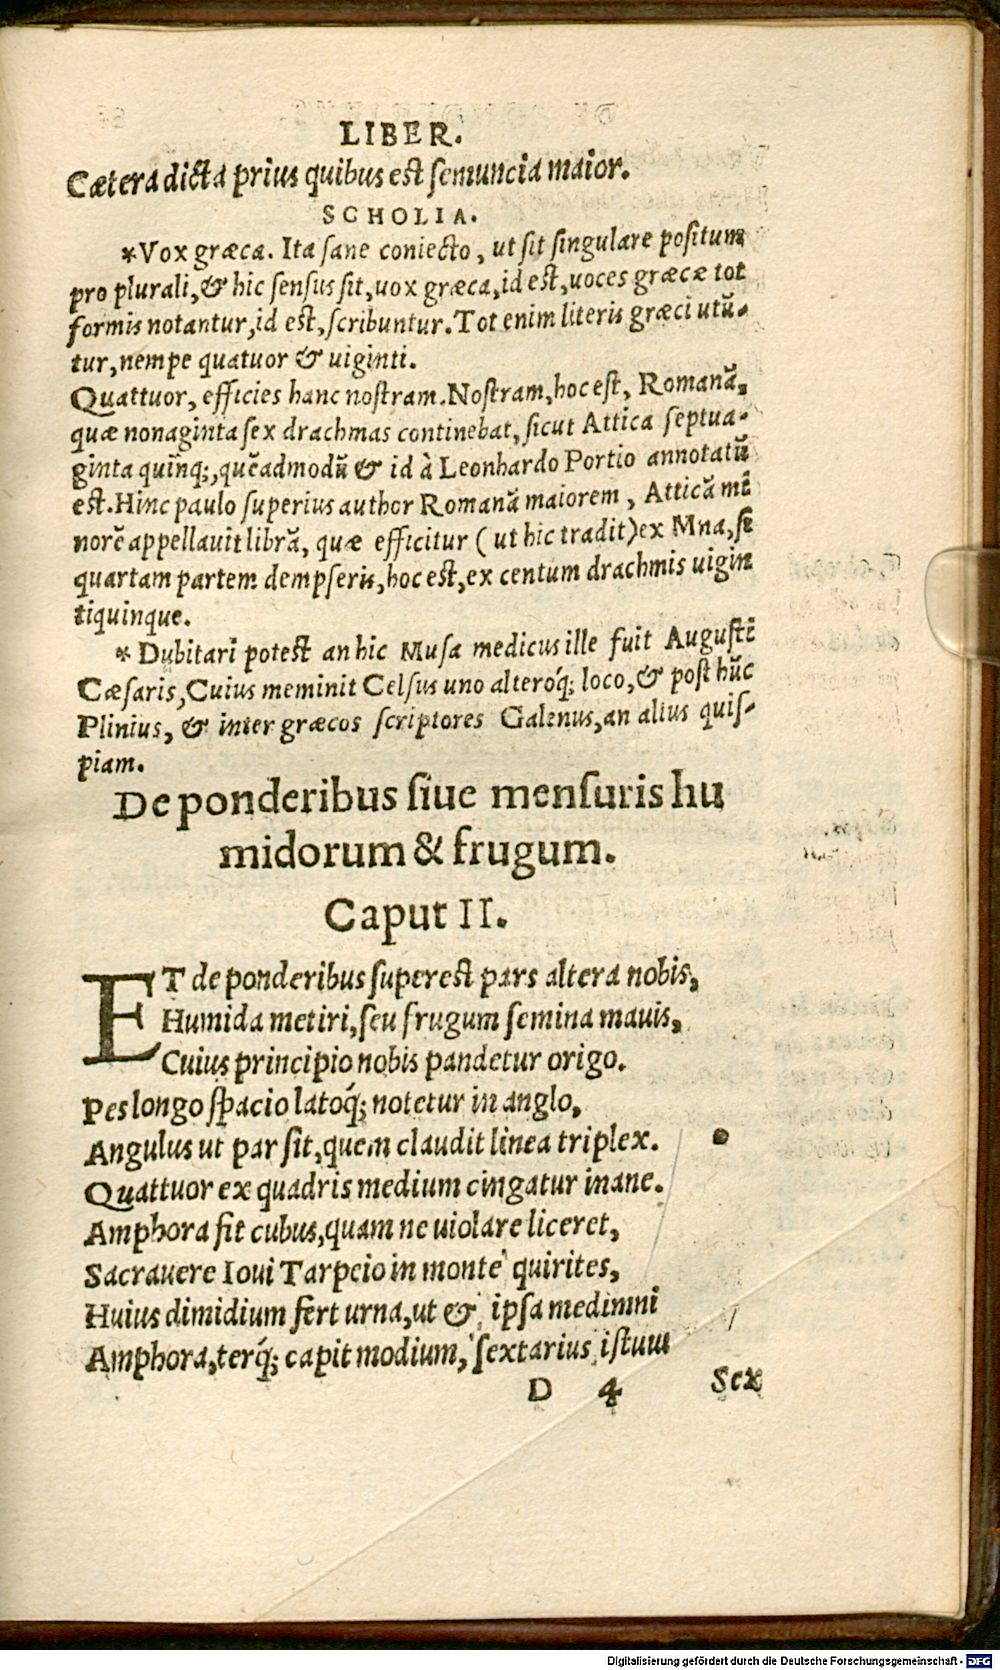 LIBER.
Cætera dicta prius quibus est semuncia maior.
SCHOLIA.
*Vox græca. Ita sane coniecto, ut sit singulare positum
pro plurali, & hic sensus sit, vox græca, id est, voces græcæ tot
formis notantur, id est, scribuntur. Tot enim literis græci utũ-
tur, nempe quatuor & uiginti.
Quattuor, efficies hanc nostram. Nostram, hoc est, Romanã,
quæ nonaginta sex drachmas continebat, sicut Attica septua-
ginta quinq;, quẽadmodũ & id à Leonhardo Portio annotatũ
est. Hinc paulo superius author Romanã maiorem, Atticã mi
norẽ appellauit librã, quæ efficitur (ut hic tradit) ex Mna, si
quartam partem dempseris, hoc est, ex centum drachmis uigin
tiquinque.
* Dubitari potest an hic Musa medicus ille fuit Augusti
Cæsaris, Cuius meminit Celsus uno alteróq; loco, & post hũc
Plinius, & inter græcos scriptores Galenus, an alius quis-
piam.
De ponderibus siue mensuris hu
midorum & frugum.
Caput II.
ET de ponderibus superest pars altera nobis,
Humida metiri, seu frugum semina mauis,
Cuius principio nobis pandetur origo.
Pes longo spacio latoq́; notetur in anglo,
Angulus ut par sit, quem claudit linea triplex.
Quattuor ex quadris medium cingatur inane.
Amphora fit cubus, quam ne uiolare liceret,
Sacrauere Ioui Tarpeio in monte quirites,
Huius dimidium fert urna, ut & ipsa medimni
Amphora, terq́; capit modium, sextarius istum
D 4 Sex
Digitalisierung gefördert durch die Deutsche Forschungsgemeinschaft - DFG